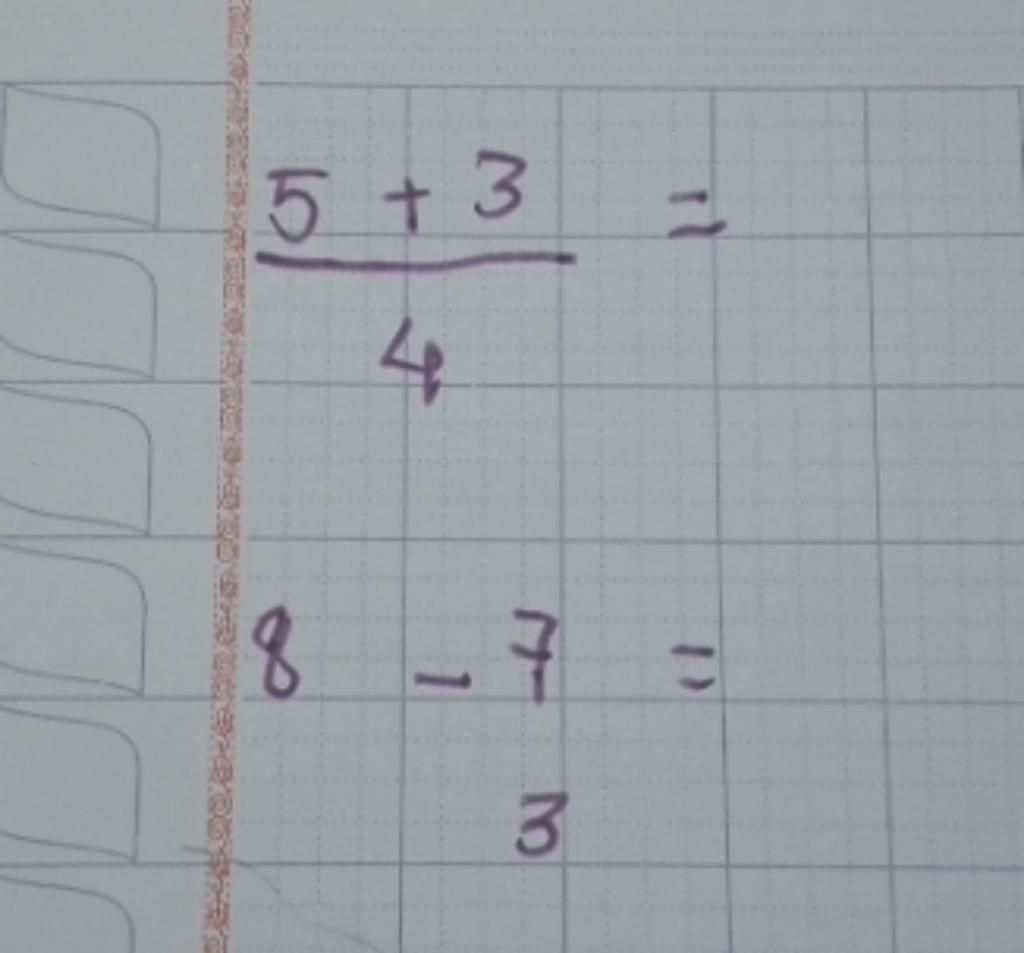 5 + 3 =
4
8 - 7 =
3